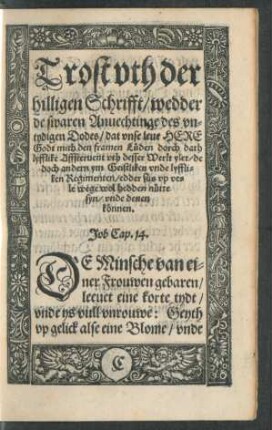 Trost vth der
hilligen Schrifft / wedder
de swaren Anuechtinge des vn-
tydigen Dodes / dat vnse leue HERE
Godt mith den framen Lüden dorch dath
lyfflike Affsteruent vth desser Werlt ylet / de
doch andern ym Geistliken vnde lyffli-
ken Regimenten / edder süs vp ve-
le wege wol hedden nütte
syn / vnde denen
können.
Job Cap. 14.
DE Minsche van ei-
ner Frouwen gebaren /
leeuet eine korte tydt /
vnde ys vull vnrouwe: Geyth
vp gelick alse eine Blome / vnde
C